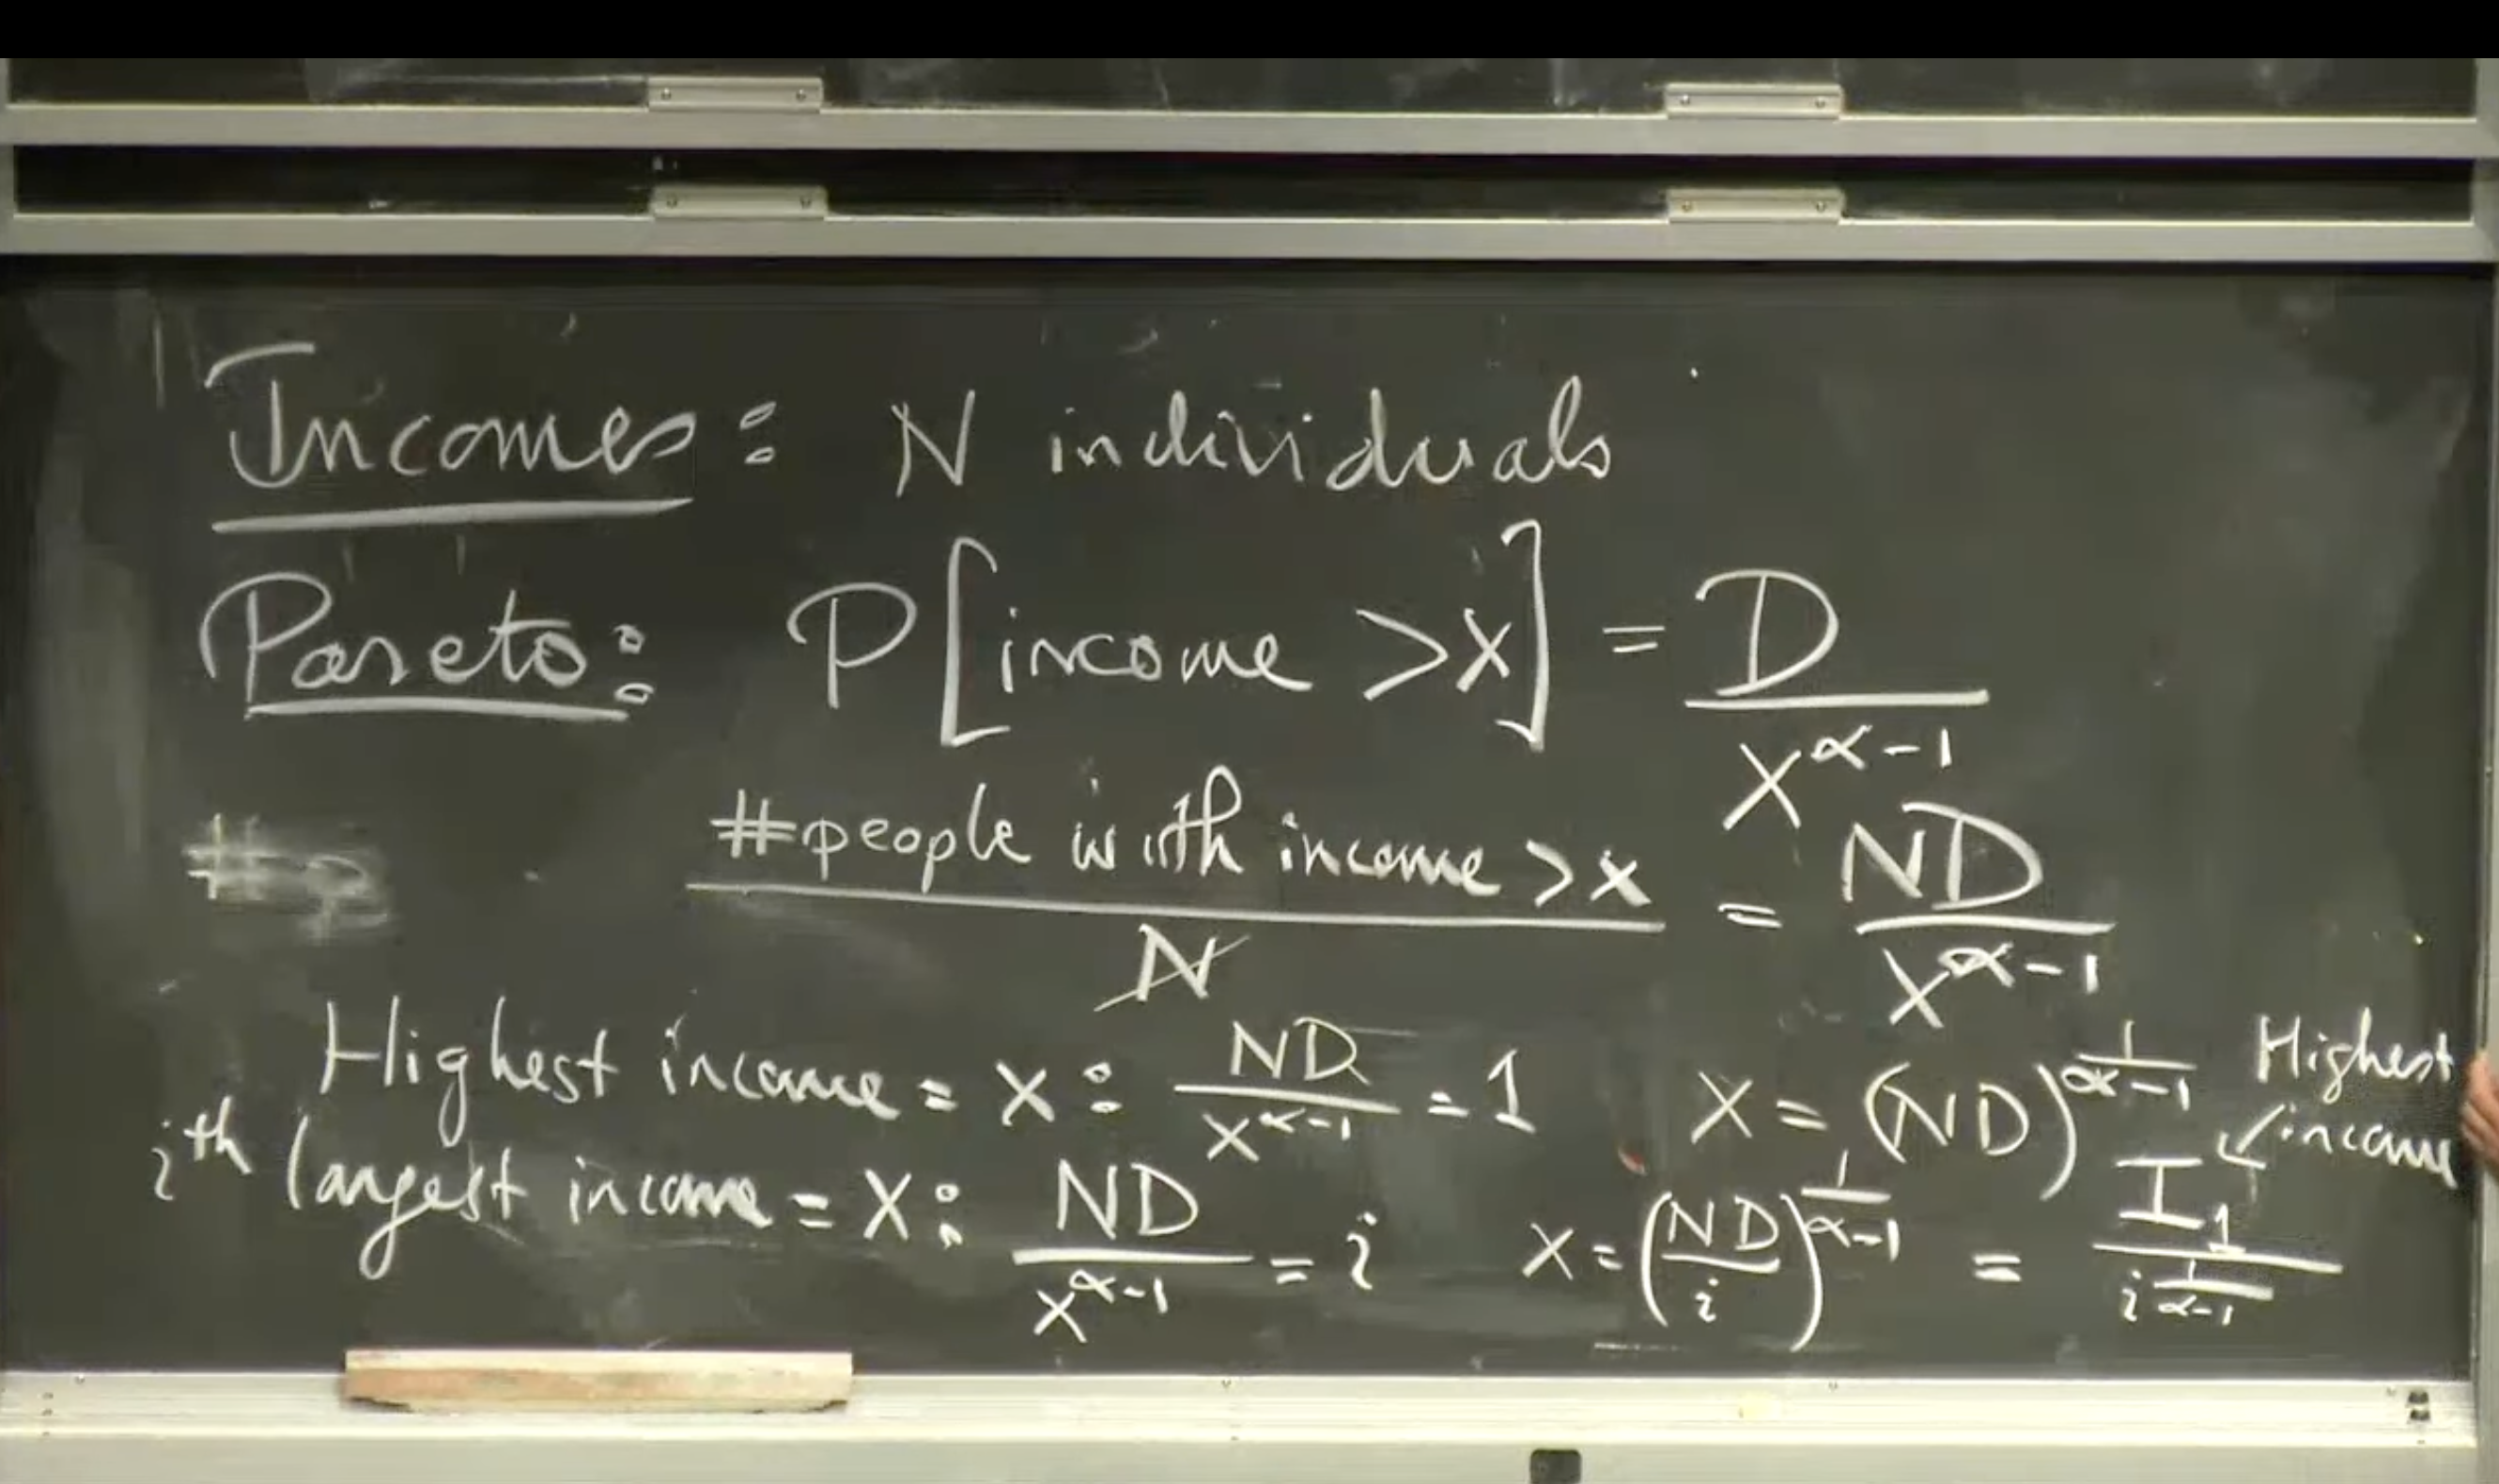 Incomes: N individuals
Pareto: P[income >x] = D / x^(α-1)
#people with income >x / N = ND / x^(α-1)
Highest income = x: ND / x^(α-1) = 1 x = (ND)^(1/(α-1)) Highest income
i^th largest income = x: ND / x^(α-1) = i x = (ND / i)^(1/(α-1)) = I_1 / i^(1/(α-1))